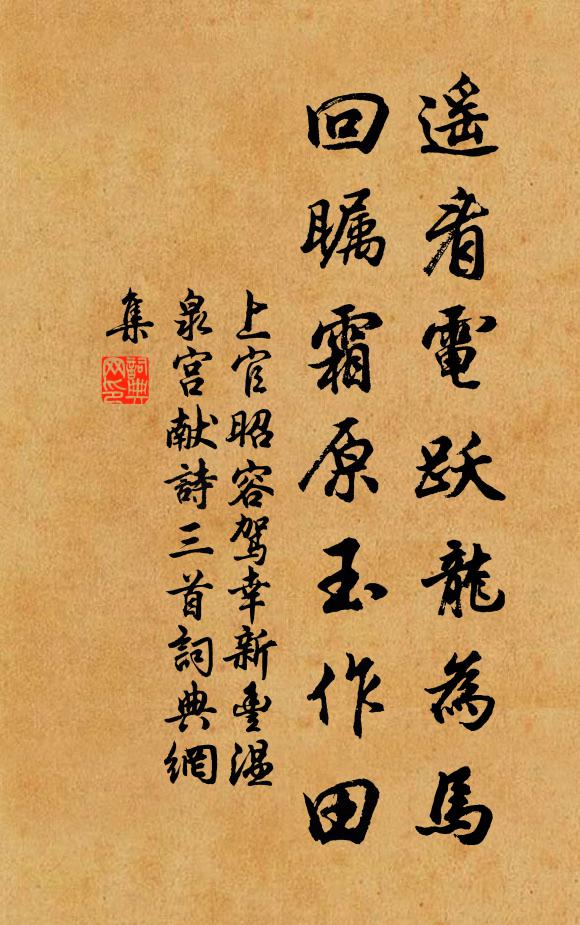 遥看電跃龍為馬
回瞩霜原玉作田
上官昭容駕幸新豊温
泉宫献詩三首詞典網
集
詞典
网印